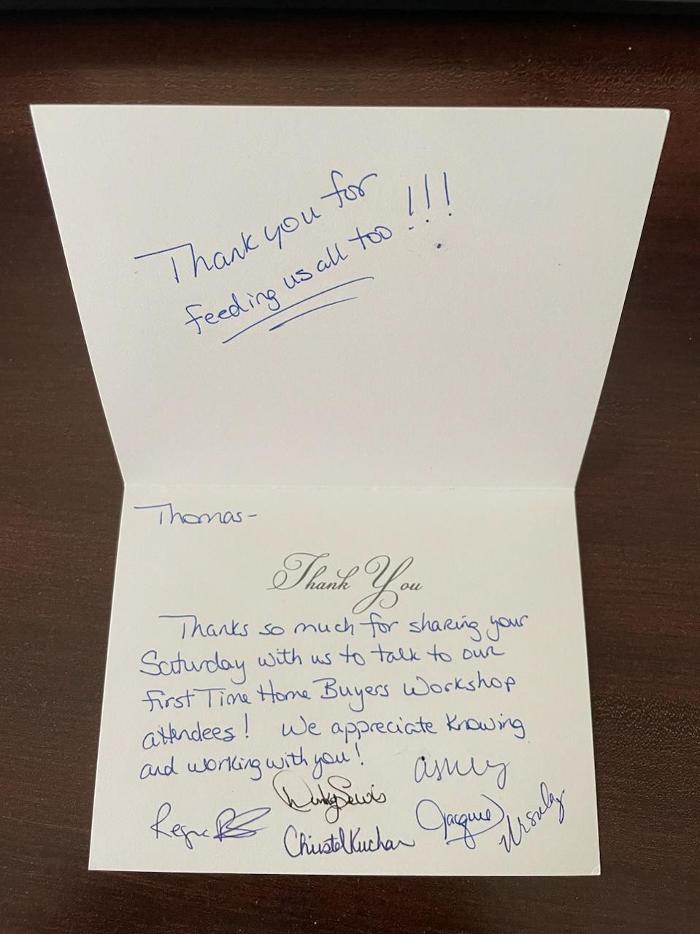 Thank you for
feeding us all too !!!
Thomas-
Thank You
Thanks so much for sharing your
Saturday with us to talk to our
First Time Home Buyers Workshop
attendees! We appreciate knowing
and working with you!
Ashley
Jacquie
Ursula